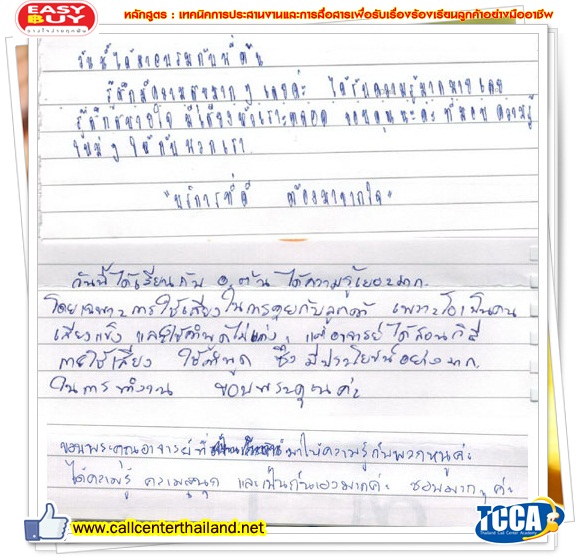 EASY
BUY
หลักสูตร : เทคนิคการประสานงานและการสื่อสารเพื่อรับเรื่องร้องเรียนลูกค้าอย่างมืออาชีพ
วันนี้ได้มาอบรมกับพี่ต้น
รู้สึกมีความสุขมากๆเลยค่ะ ได้รับความรู้มากมายเลย
รู้สึกสบายใจ มีเสียงหัวเราะตลอด ขอบคุณนะคะ ที่มอบความรู้
ใหม่ๆ ให้กับพวกเรา
"บริการที่ดี ต้องมาจากใจ"
วันนี้ได้เรียนกับ อ.ต้น ได้ความรู้เยอะมาก.
โดยเฉพาะการใช้เสียงในการคุยกับลูกค้า เพราะโอเป็นคน
เสียงแข็ง และใช้คำพูดไม่เก่ง, แต่อาจารย์ได้สอนวิธี
การใช้เสียง ใช้คำพูด ซึ่งมีประโยชน์อย่างมาก.
ในการทำงาน ขอบพระคุณค่ะ
ขอบพระคุณอาจารย์ที่ มาให้ความรู้กับพวกหนูค่ะ
ได้ความรู้ ความสนุก และเป็นกันเองมากค่ะ ชอบมากๆค่ะ
www.callcenterthailand.net
TCCA
Thailand Call Center Academy